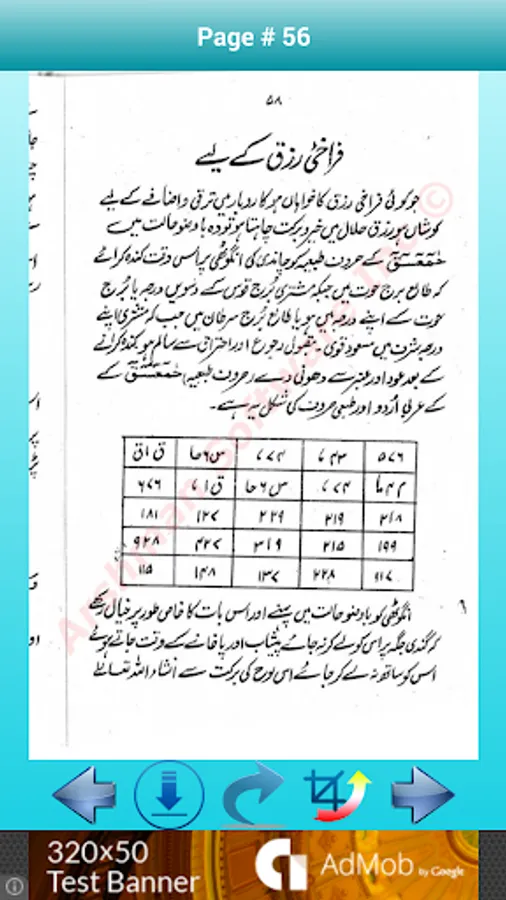 Page # 56
۵۸
فراخئ رزق کے لیے
جو کوئی فراخی رزق کا خواہاں ہو کاروبار میں ترقی و اضافے کے لیے
کوشاں ہو رزق حلال میں خیر و برکت چاہتا ہو تو وہ با وضو حالت میں
حٰمٓعٓسٓقٓ کے حروف طبعیہ کو چاندی کی انگوٹھی پر اس وقت کندہ کرائے
کہ طالع برج حوت میں جبکہ مشتری برج قوس کے دسویں درجہ یا برج
حوت کے اپنے درجہ میں ہو یا طالع برج سرطان میں جب کہ مشتری اپنے
درجہ شرف میں مسعود قوی رجوع اور احتراق سے سالم ہو کندہ کرانے
کے بعد عود اور عنبر سے دھونی دے حروف طبعیہ حٰمٓعٓسٓقٓ کے
کے عربی اُردو اور طبعی حروف کی شکل یہ ہے۔
۵۷۶
۲۱۸ ۲۱۹ ۲۲۹ ۱۲۷ ۱۸۱
۱۹۹ ۲۱۵ ۳۱۹ ۴۲۷ ۹۲۸
۹۱۷ ۲۲۸ ۱۳۷ ۱۴۸ ۱۱۵
انگوٹھی کو با وضو حالت میں پہنے اور اس بات کا خاص طور پر خیال رکھے
کہ گندی جگہ پر اس کو لے کر نہ جائے پیشاب اور پاخانے کے وقت جاتے ہوئے
اس کو ساتھ نہ لے کر جائے اس لوح کی برکت سے انشاء اللہ تعالےٰ
Arshman Software Inc ©
320×50
Test Banner
AdMob by Google